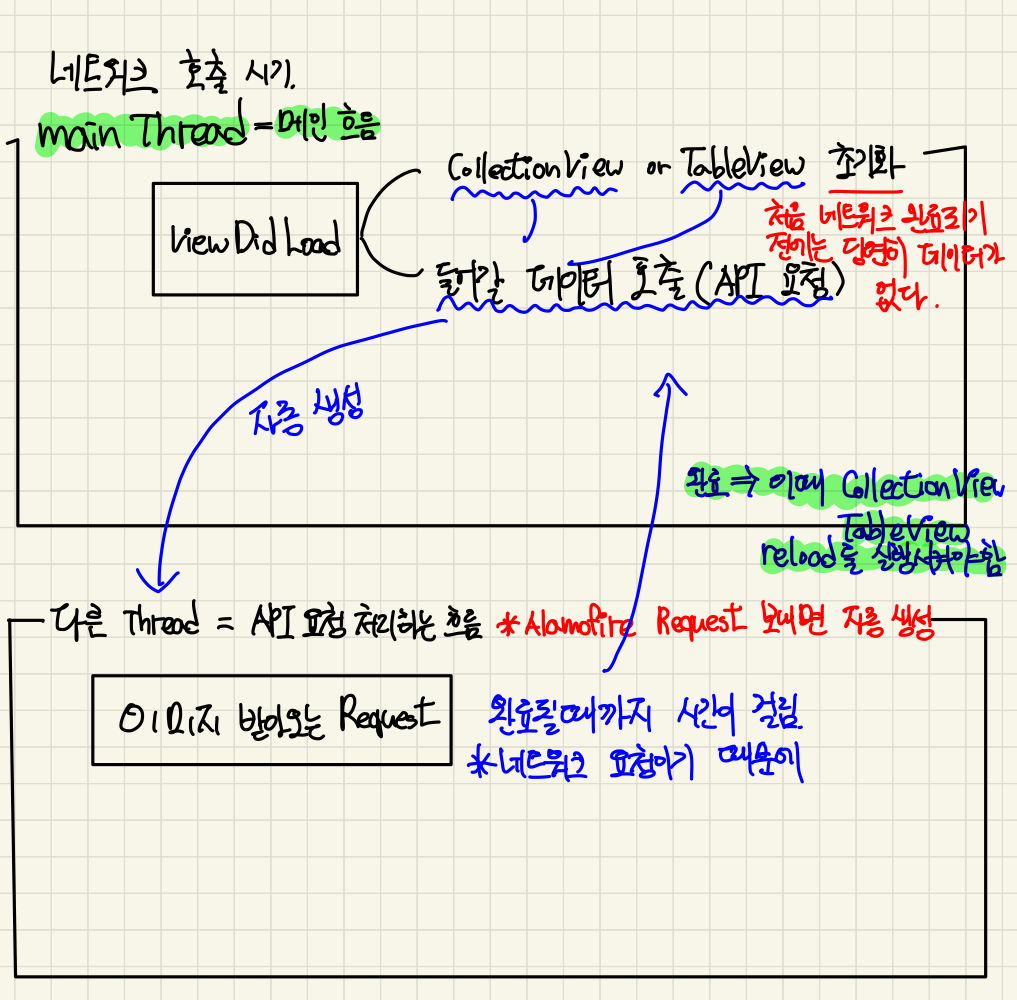 네트워크 호출 시기.
main Thread = 메인 흐름
CollectionView or TableView 초기화
ViewDidLoad
처음 네트워크 완료되기
전에는 당연히 데이터가
없다.
들어갈 데이터 호출 (API 요청)
자동 생성
완료 ⇒ 이때 CollectionView
TableView
reload를 실행시켜야함
다른 Thread = API 요청 처리하는 흐름 *Alamofire Request 보내면 자동 생성
이미지 받아오는 Request
완료될때까지 시간이 걸림
*네트워크 요청이기 때문에